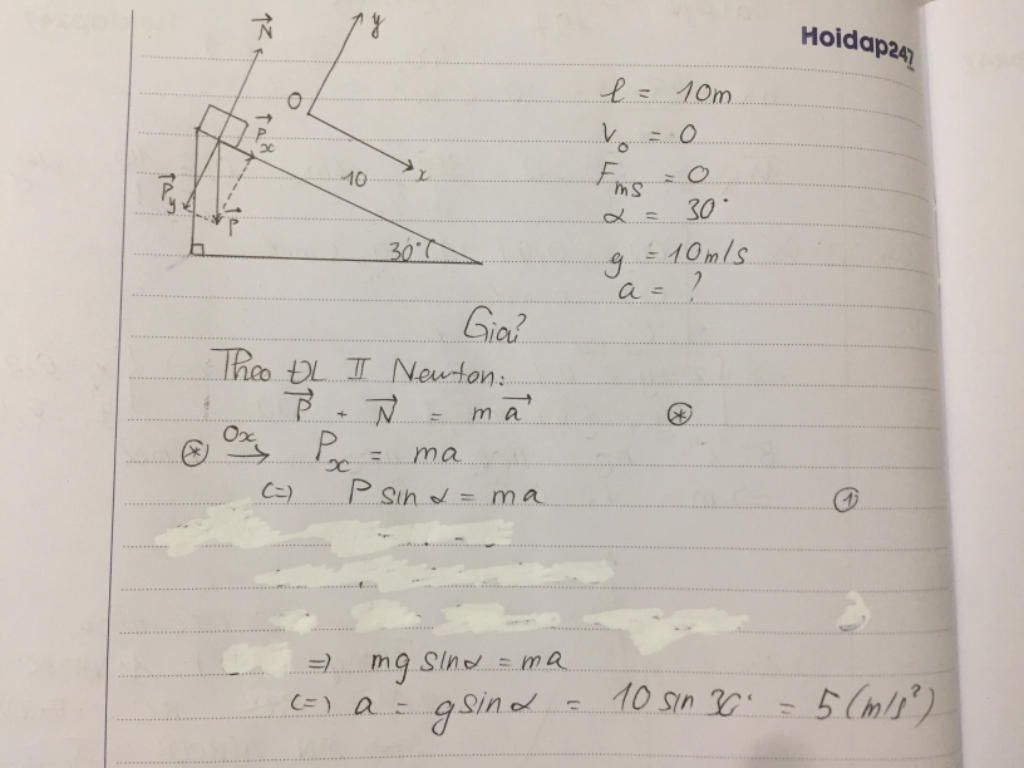 Hoidap247
N
y
O
Px
x
10
Py
P
30°
l = 10m
v₀ = 0
Fms = 0
α = 30°
g = 10m/s
a = ?
Giải
Theo ĐL II Newton:
P + N = ma ⊛
⊛ Ox→ Px = ma
(=) P sin α = ma ①
=) mg sin α = ma
(=) a = g sin α = 10 sin 30° = 5 (m/s²)